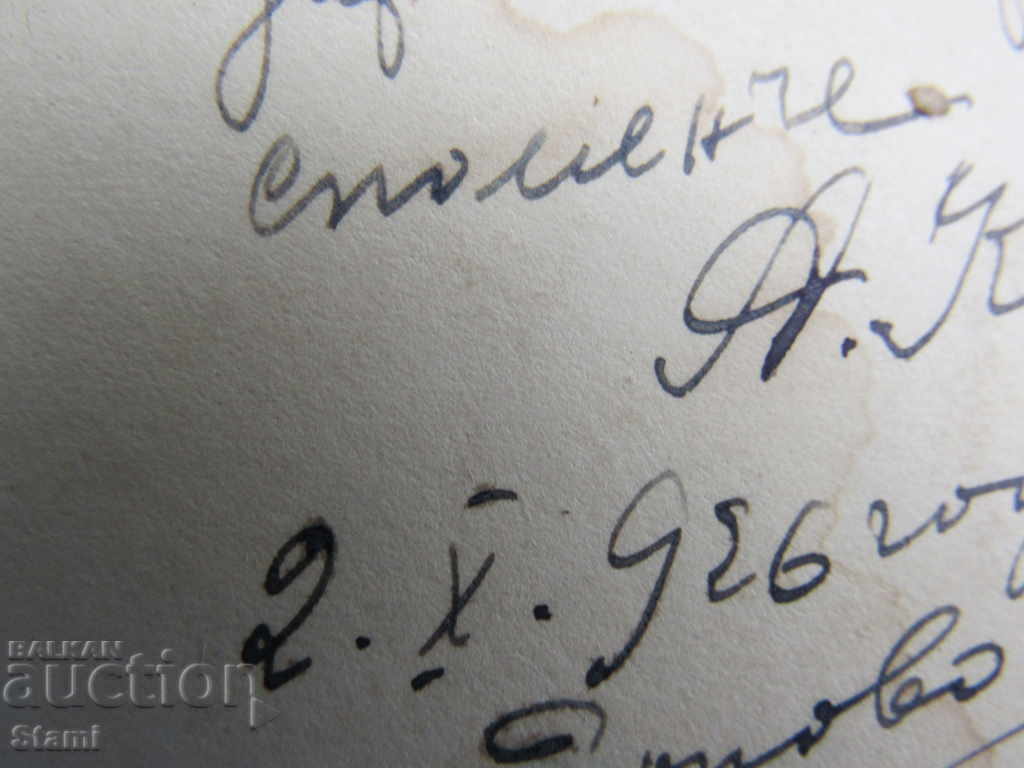 спомен че
А. К
2. X. 926 год
BALKAN
auction
Stami